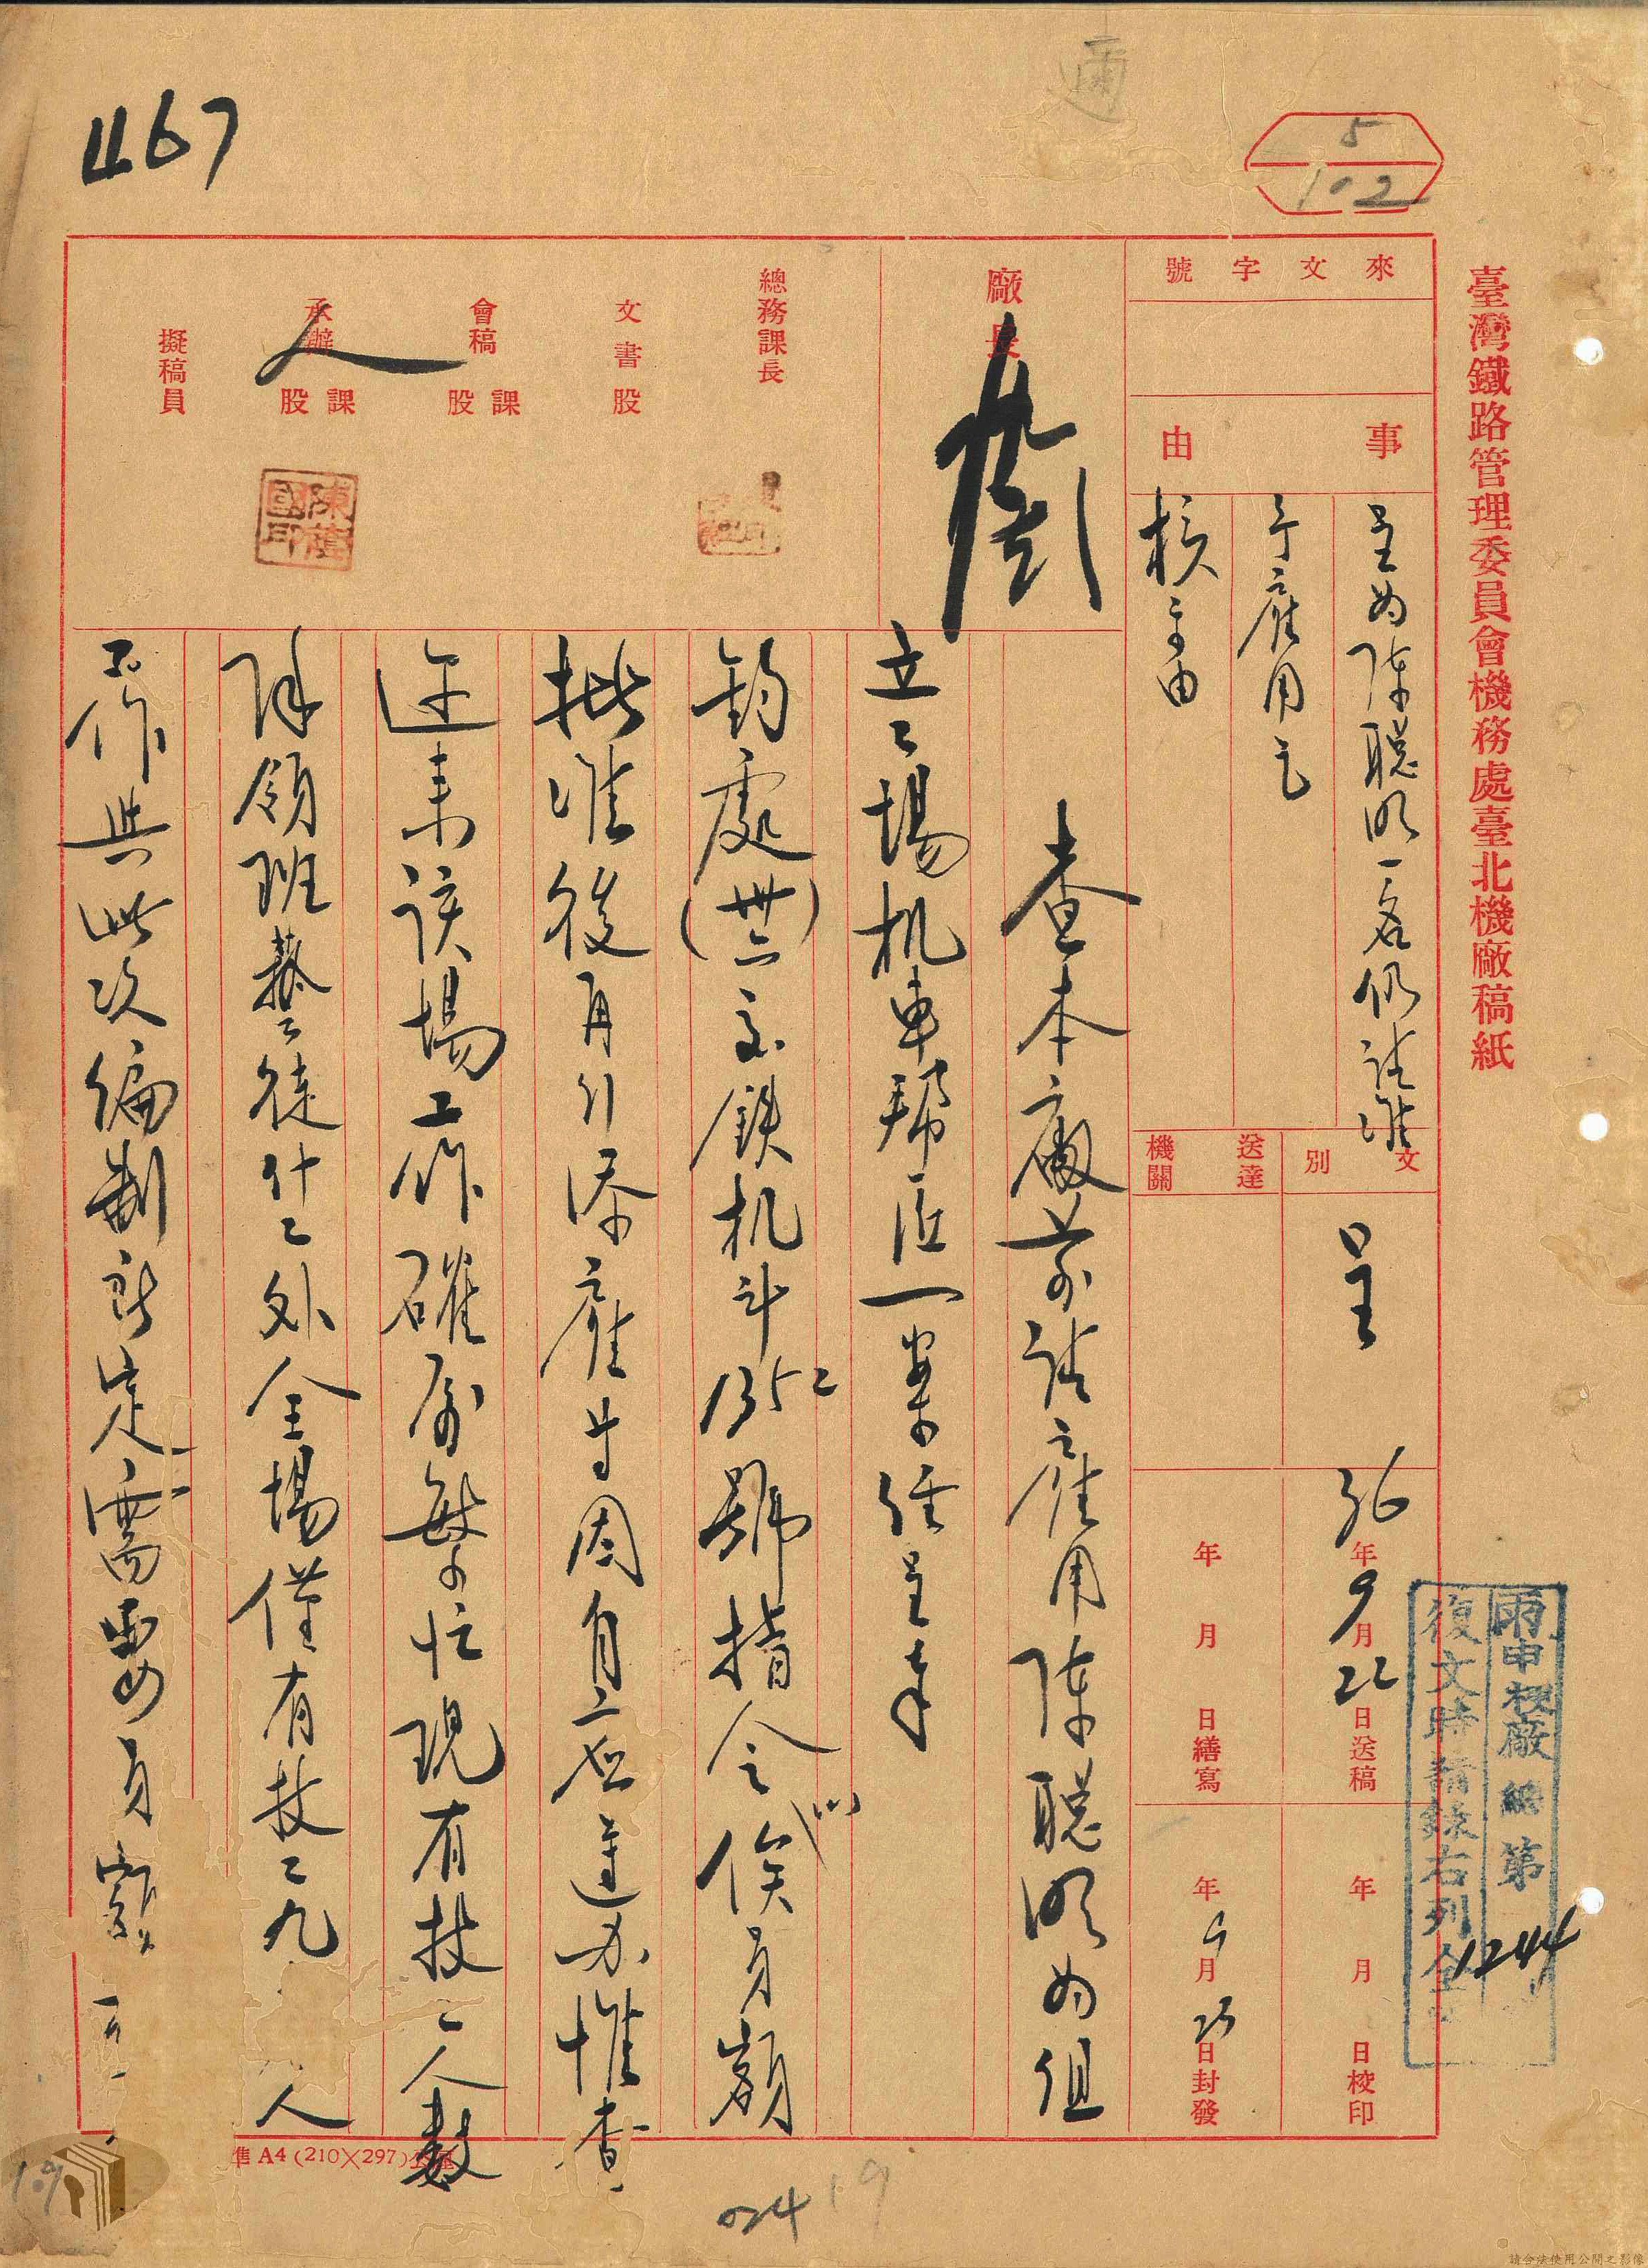 臺灣鐵路管理委員會機務處臺北機廠稿紙
5
102
467
來文字號
事由
呈為陳聰明一名仍請准
予雇用乞
核示由
文別
呈
送達機關
36年9月22日送稿
年月日繕寫
年月日校印
年9月25日封發
雨申機廠總第1244
復文時請錄右列全
廠長
總務課長
文書股
會稿課股
承辦課股
擬稿員
查本廠前請雇用陳聰明為組
立工場机車幫匠一案經呈奉
鈞處(卅六)京鉄机斗1352號指令(以)俟員額
批准後再行添雇等因自應遵办惟查
近來該場工作確屬繁忙現有技工人數
除領班藝徒什工外全場僅有技工九人
工作與此次編制所定需要員額
準A4(210×297)公厘
024
19
19
請合法使用公開之影像